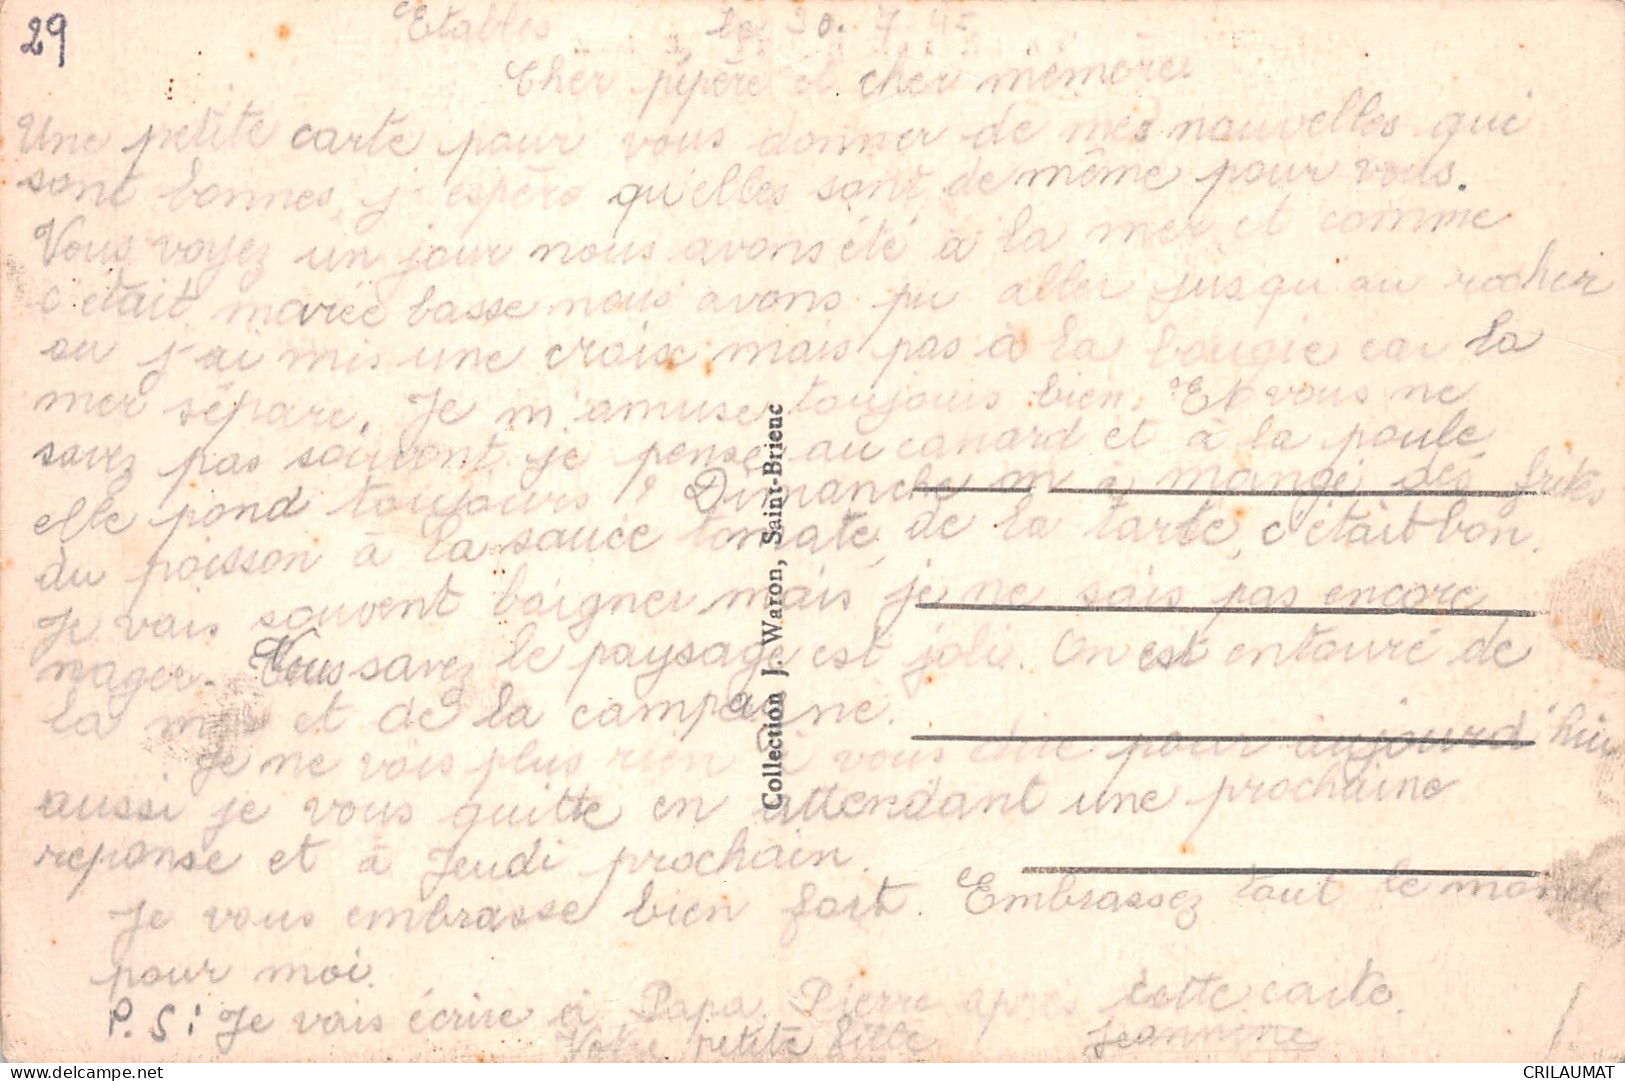 29
Etables le 30. 7. 45
Cher pépère et cher mémère
Une petite carte pour vous donner de mes nouvelles qui
sont bonnes, j'espère qu'elles sont de même pour vous.
Vous voyez un jour nous avons été à la mer et comme
c'etait marée basse nous avons pu aller jusqu'au rocher
ou j'ai mis une croix mais pas à la bougie car la
mer sépare. Je m'amuse toujours bien. Et vous ne
savez pas souvent je pense au canard et à la poule
elle pond toujours ? Dimanche on a mangé des frites
du poisson à la sauce tomate, de la tarte, c'était bon.
Je vais souvent baigner mais je ne sais pas encore
nager. Vous savez le paysage est joli. On est entouré de
la mer et de la campagne.
Je ne vois plus rien à vous dire pour aujourd'hui
aussi je vous quitte en attendant une prochaine
reponse et à Jeudi prochain.
Je vous embrasse bien fort. Embrassez tout le monde
pour moi.
P.S: Je vais écrire à Papa Pierre après cette carte.
Votre petite fille Jeannine
Collection J. Waron, Saint-Brieuc
CRILAUMAT